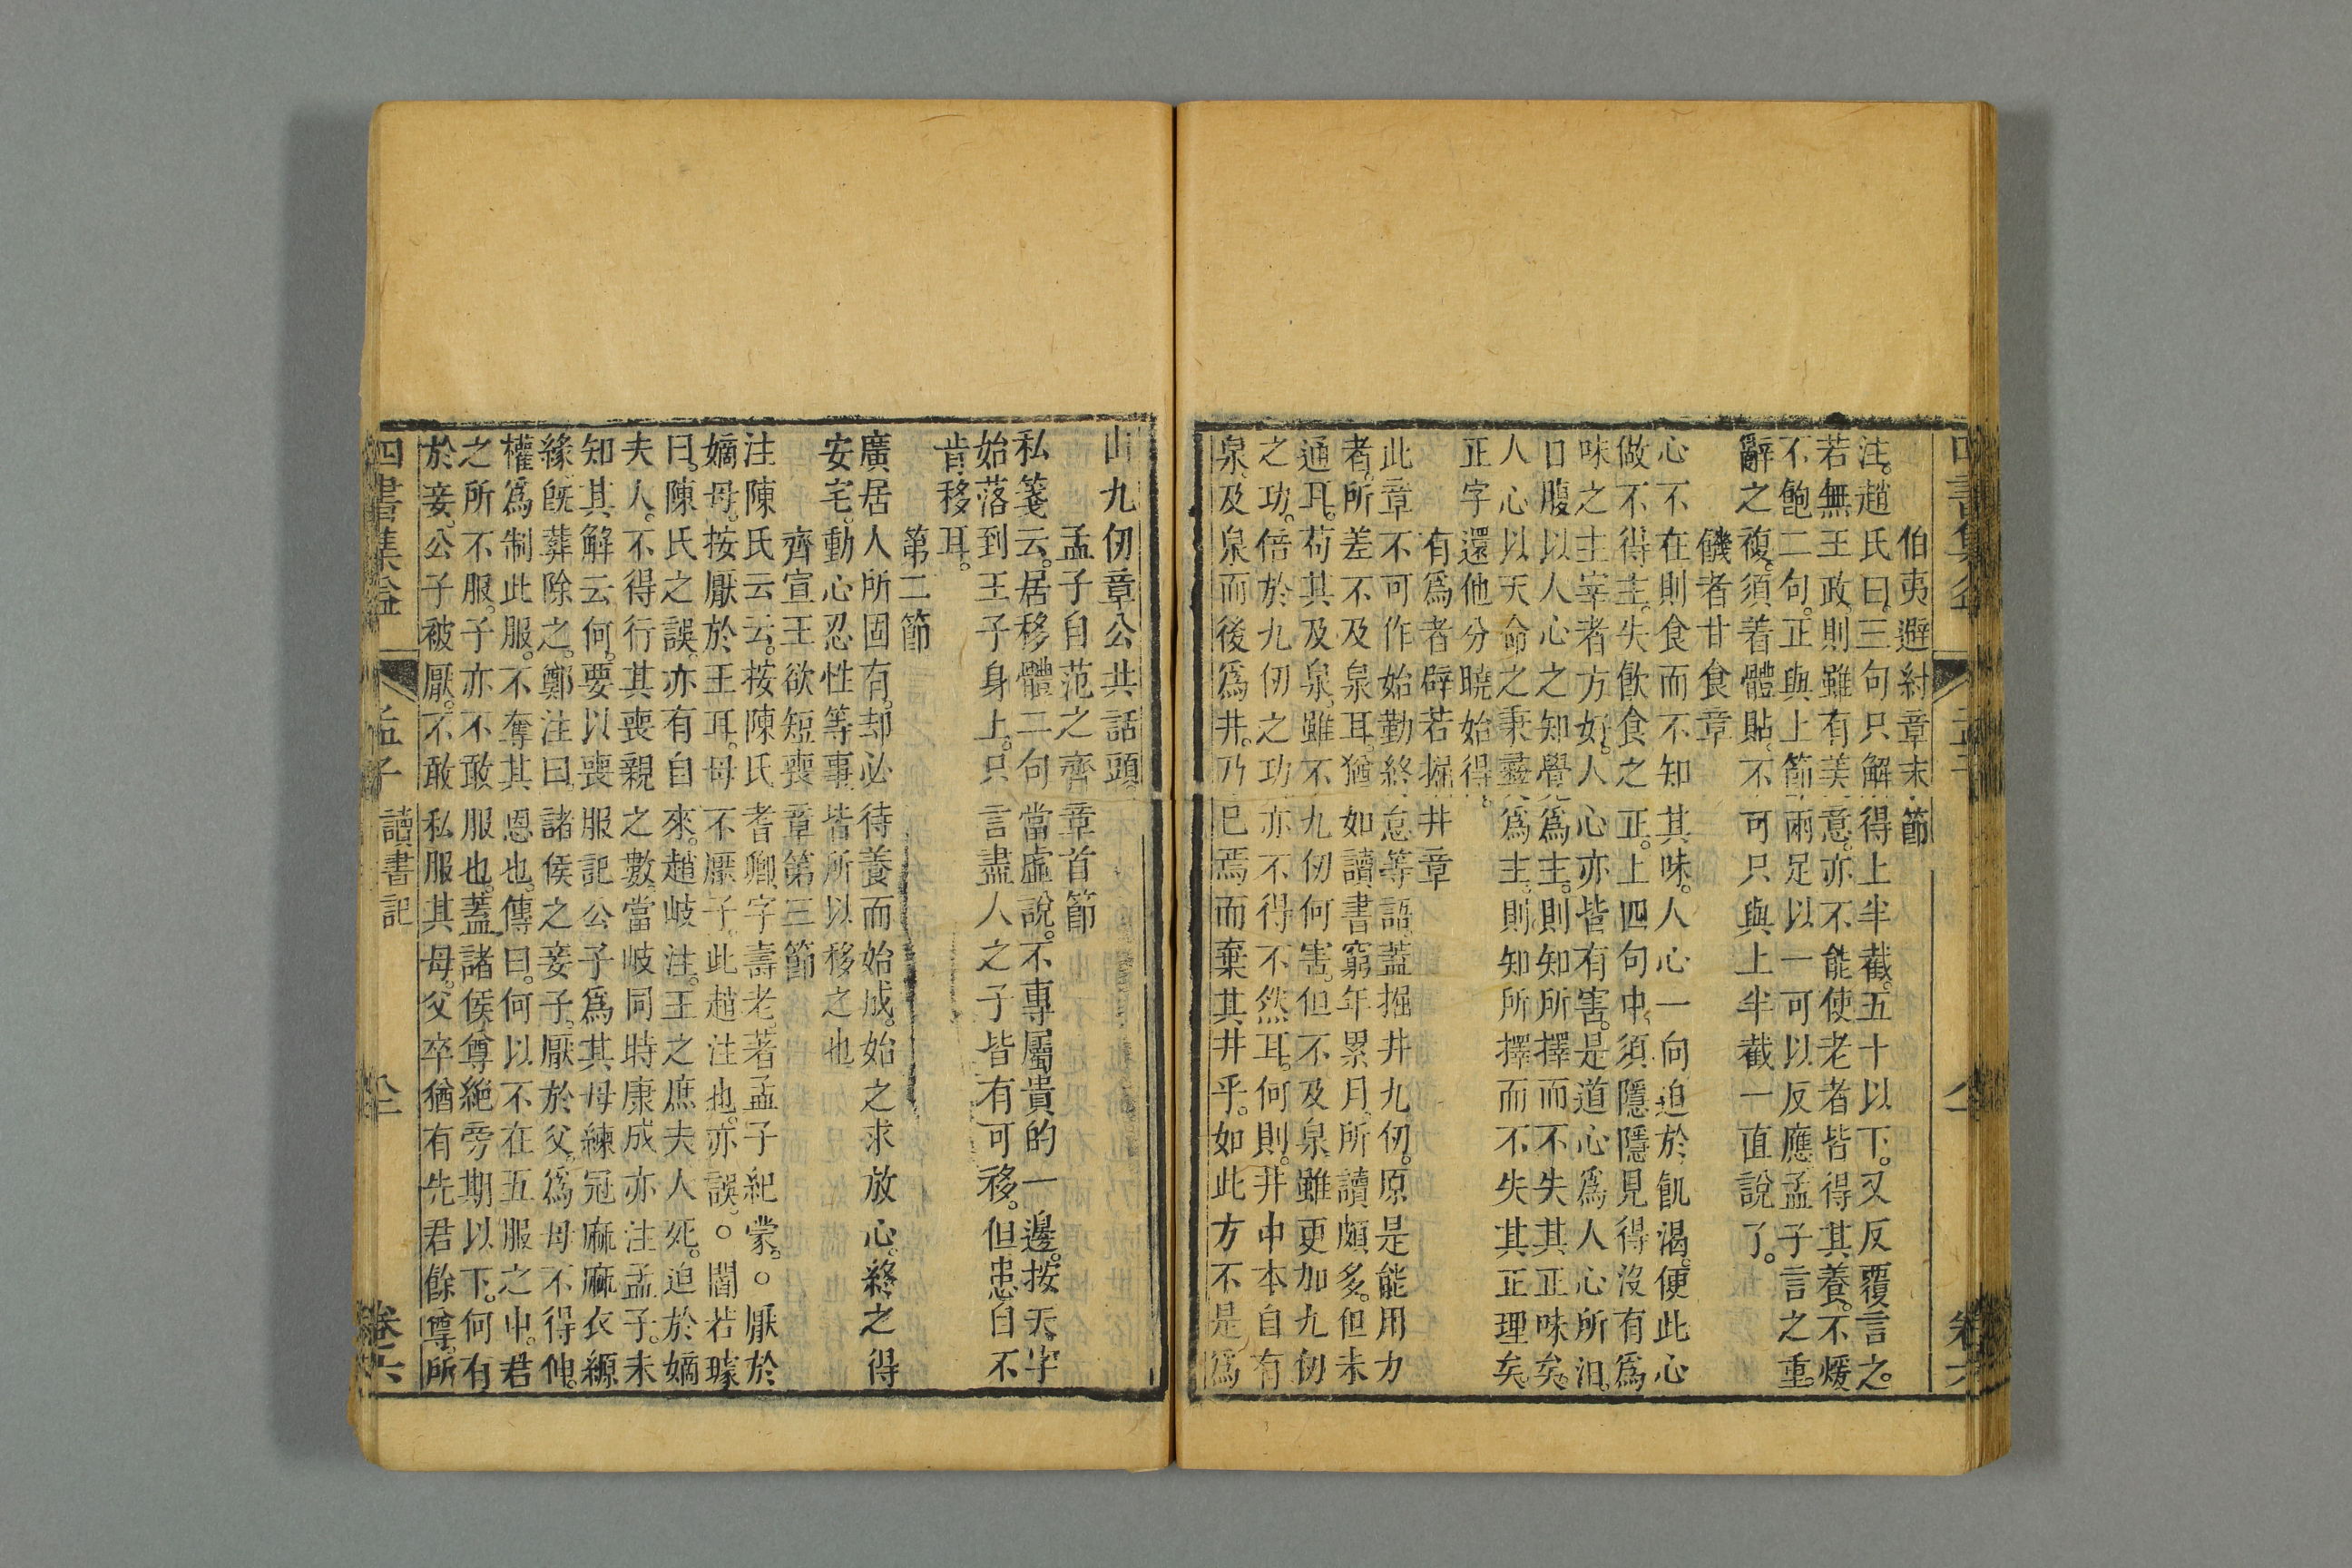 伯夷避紂章末節
注。趙氏曰。三句只解得上半截。五十以下。又反覆言之。
若無王政。則雖有美意。亦不能使老者皆得其養。不煖
不飽二句。正與上節兩足以一可以反應。孟子言之重。
辭之複。須着體貼。不可只與上半截一直說了。
饑者甘食章
心不在則食而不知其味。人心一向迫於飢渴。便此心
做不得主。失飲食之正。上四句中。須隱隱見得沒有爲
味之主宰者方好。人心亦皆有害。是道心爲人心所汨。
口腹以人心之知覺爲主。則知所擇而不失其正味矣。
人心以天命之秉彝爲主。則知所擇而不失其正理矣。
正字還他分曉始得。
有爲者辟若掘井章
此章不可作始勤終怠等語。蓋掘井九仞。原是能用力
者。所差不及泉耳。猶如讀書窮年累月。所讀頗多。但未
通耳。苟其及泉。雖不九仞何害。但不及泉。雖更加九仞
之功。倍於九仞之功。亦不得不然耳。何則。井中本自有
泉。及泉而後爲井。乃已焉而棄其井乎。如此方不是爲
四書集益 孟子 讀書記 卷六
山九仞章公共話頭
孟子自范之齊章首節
私箋云。居移體二句。當虛說。不專屬貴的一邊。按天字
始落到王子身上。只言盡人之子皆有可移。但患自不
肯移耳。
第二節
廣居人所固有。却必待養而始成。始之求放心。終之得
安宅。動心忍性等事。皆所以移之也
齊宣王欲短喪章第三節
注陳氏云云。按陳氏耆卿。字壽老。著孟子紀蒙。○厭於
嫡母。按厭於王耳。母不厭子。此趙注也。亦誤。○閻若璩
曰。陳氏之誤。亦有自來。趙岐注。王之庶夫人死。迫於嫡
夫人。不得行其喪親之數。當岐同時康成亦注孟子。未
知其解云何。要以喪服記公子爲其母練冠麻麻衣縓
緣。旣葬除之。鄭注曰。諸侯之妾子。厭於父。爲母不得伸。
權爲制此服。不奪其恩也。傳曰。何以不在五服之中。君
之所不服。子亦不敢服也。蓋諸侯尊絕旁期以下。何有
於妾。公子被厭。不敢私服其母。父卒猶有先君餘尊所
四書集益 孟子 讀書記 卷六